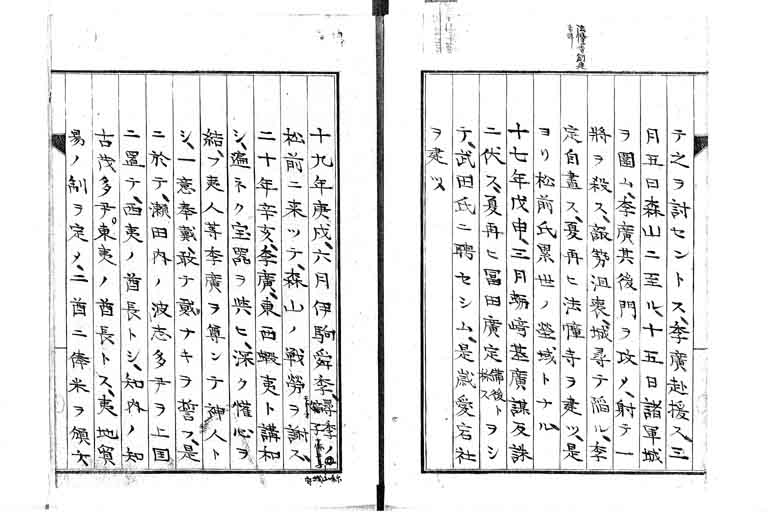 法憧寺創建
テ之ヲ討セントス、李廣赴援ス、三
月五日森山ニ至ル、十五日諸軍城
ヲ圍ム、李廣其後門ヲ攻メ、射テ一
將ヲ殺ス、諏勢沮喪、城尋テ陥ル、李
定自盡ス、夏再ヒ法憧寺ヲ建ツ、是
ヨリ松前氏累世ノ塋域トナル、
十七年戊申、三月蛎﨑基廣謀反誅
ニ伏ス、夏再ヒ冨田廣定備後ト称スヲシ
テ、武田氏ニ聘セシム、是歳愛宕社
ヲ建ツ、
十九年庚戌、六月伊駒舜李、尋李ノ子
松前ニ来ツテ、森山ノ戰勞ヲ謝ス、
二十年辛亥、李廣、東西蝦夷ト講和
シ、遍ネク宝器ヲ与ヒ、深ク懽心ヲ
結ブ、夷人等李廣ヲ尊ンテ神人ト
シ、一意奉戴敢テ貳ナキヲ誓フ、是
ニ於テ、瀬田内ノ波志多尹ヲ上国
ニ置テ、西夷ノ酋長トシ、知内ノ知
古茂多尹。東夷ノ酋長トス、夷地貿
易ノ制ヲ定メ、二酋ニ俸米ヲ頒ツ